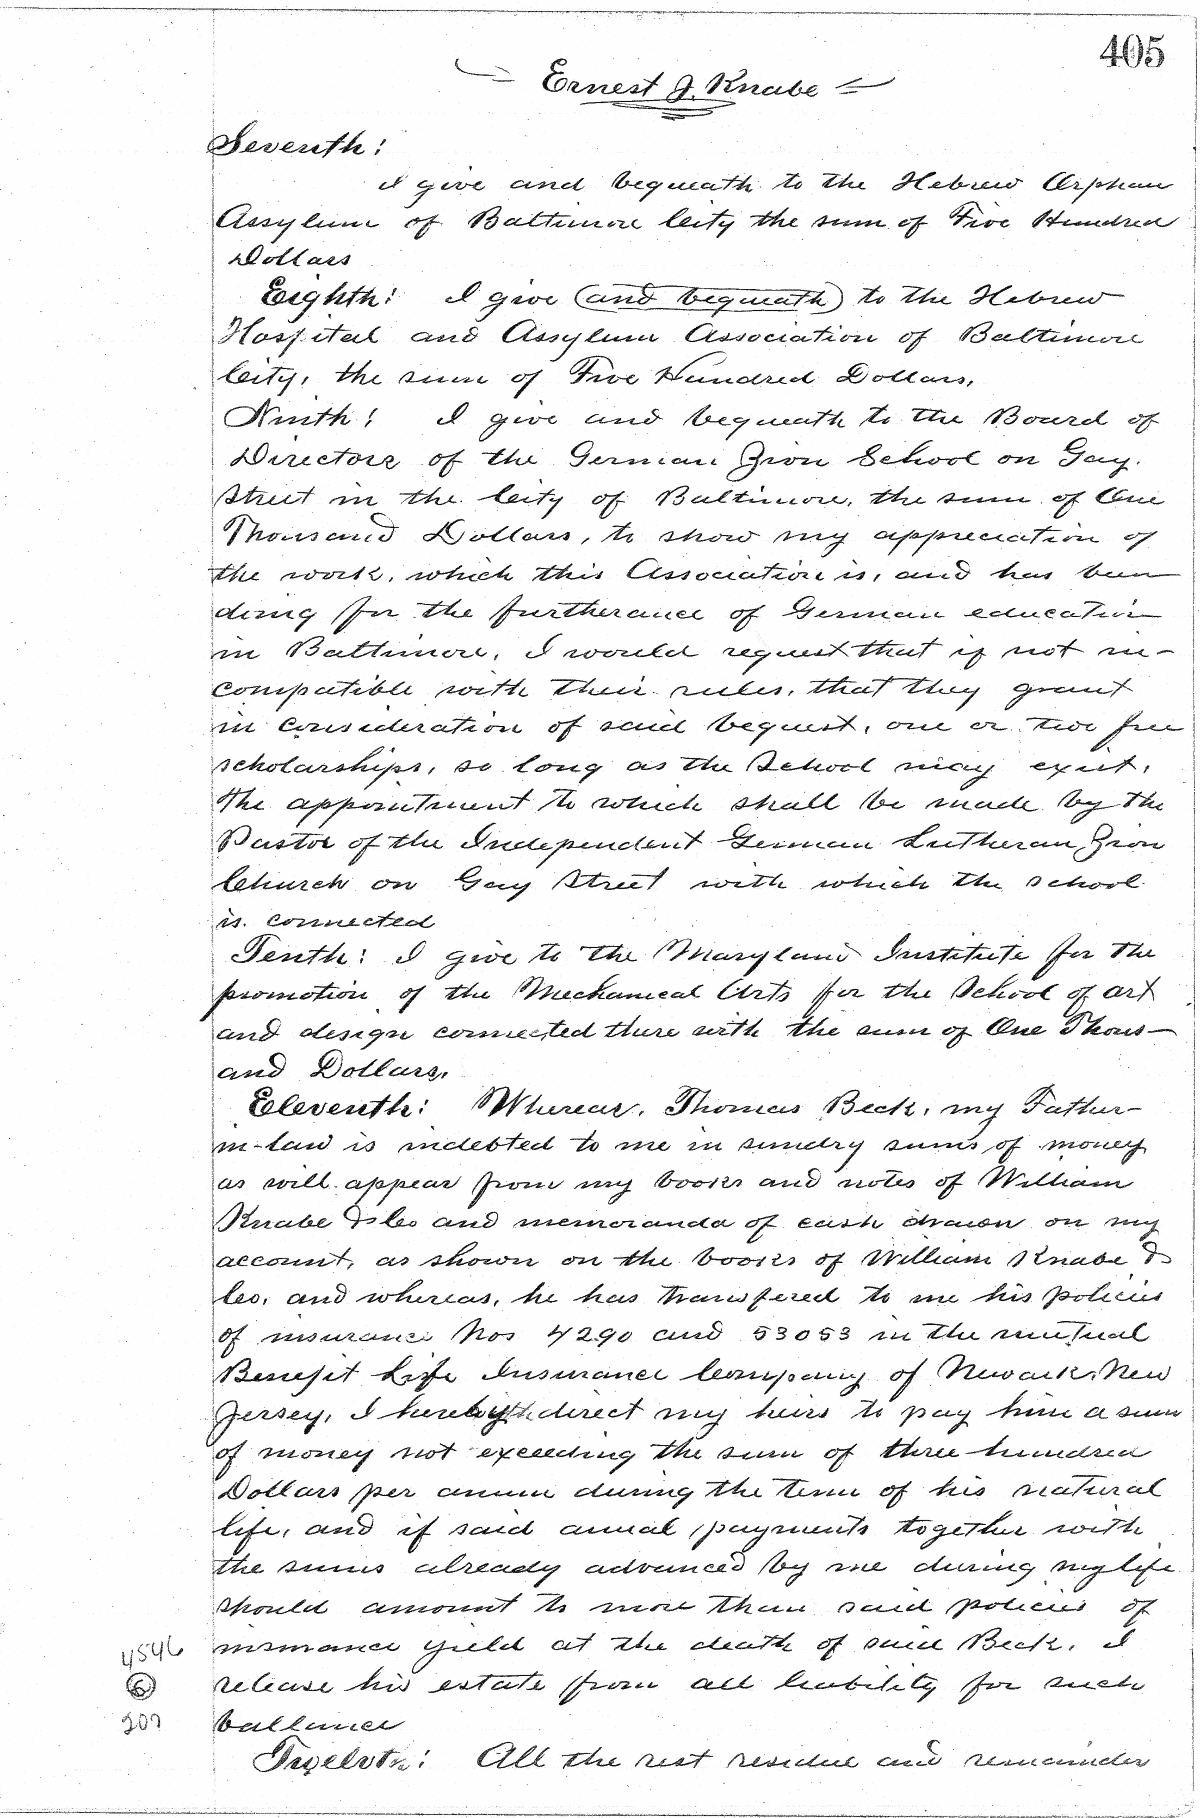 405
Ernest J. Knabe
Seventh:
I give and bequeath to the Hebrew Orphan
Assylum of Baltimore City the sum of Five Hundred
Dollars
Eighth: I give (and bequeath) to the Hebrew
Hospital and Assylum Association of Baltimore
City, the sum of Five Hundred Dollars,
Ninth: I give and bequeath to the Board of
Directors of the German Zion School on Gay
Street in the City of Baltimore, the sum of One
Thousand Dollars, to show my appreciation of
the work, which this Association is, and has been
doing for the furtherance of German education
in Baltimore, I would request that if not in-
compatible with their rules, that they grant
in consideration of said bequest, one or two free
scholarships, so long as the School may exist,
the appointment to which shall be made by the
Pastor of the Independent German Lutheran Zion
Church on Gay Street with which the school
is connected
Tenth: I give to the Maryland Institute for the
promotion of the Mechanical Arts for the School of art
and design connected there with the sum of One Thous-
and Dollars,
Eleventh: Whereas, Thomas Beck, my Father-
in-law is indebted to me in sundry sums of money
as will appear from my books and notes of William
Knabe & Co and memoranda of cash drawn on my
account, as shown on the books of William Knabe &
Co, and whereas, he has transfered to me his policies
of insurance Nos 4290 and 53053 in the mutual
Benefit Life Insurance Company of Newark, New
Jersey, I hereby direct my heirs to pay him a sum
of money not exceeding the sum of three hundred
Dollars per annum during the term of his natural
life, and if said annual payments together with
the sums already advanced by me during my life
should amount to more than said policies of
insurance yield at the death of said Beck, I
release his estate from all liability for such
ballance
4546
6
207
Twelvth: All the rest residue and remainder